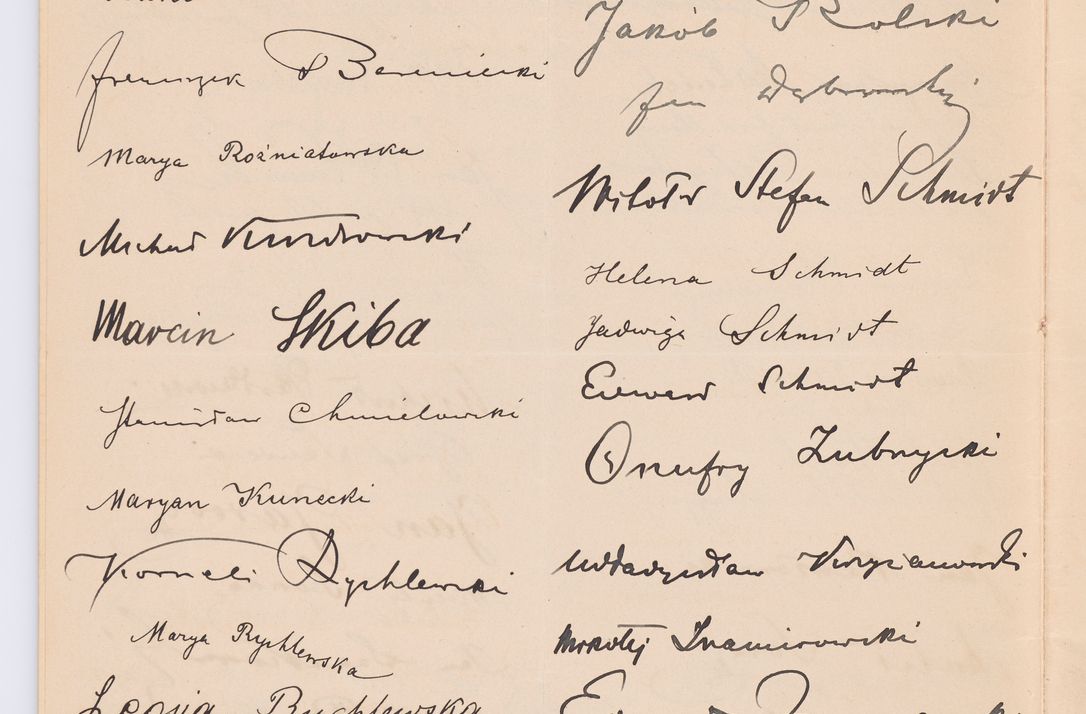 Franciszek Bareniecki
Marya Rożniatowska
Michał
Marcin Skiba
Stanisław Chmielowski
Maryan Kunecki
Korneli Rychlewski
Marya Rychlewska
Rychlewska
Jakób Rolski
Jan Dąbrowski
Witołd Stefan Schmidt
Helena Schmidt
Jadwiga Schmidt
Edward Schmidt
Onufry Zubrzycki
Władzysław Krzyżanowski
Mikołaj Inamirowski